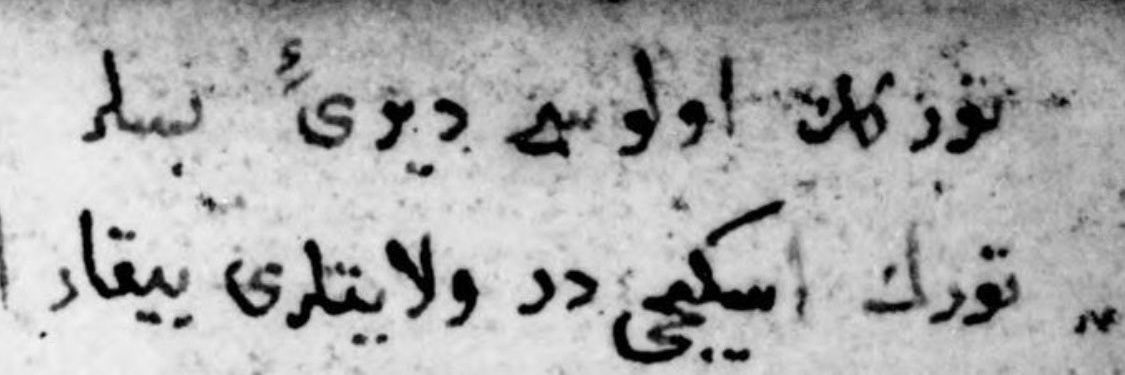 تورکك اولوسی دیوی بسلر
تورك اسکیجی در ولایتلری ییقار